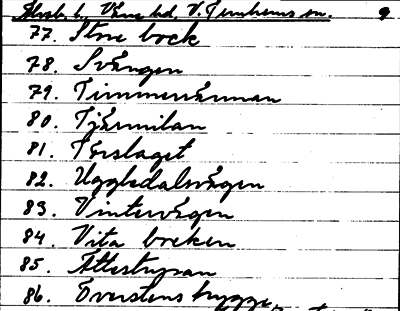 Älvsb. l. Väne hd. V. Tunhems sn. 9
77. Stora bock
78. Svängen
79. Timmersvennan
80. Tjärmilan
81. Torslaget
82. Uggledalsvägen
83. Vintervägen
84. Vita bocken
85. Ättestupan
86. Överstens bygge